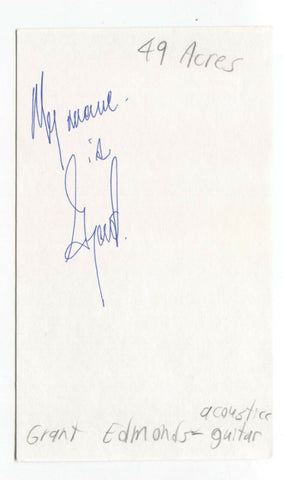 49 Acres
My name
is
Grant.
acoustic
Grant Edmonds - guitar